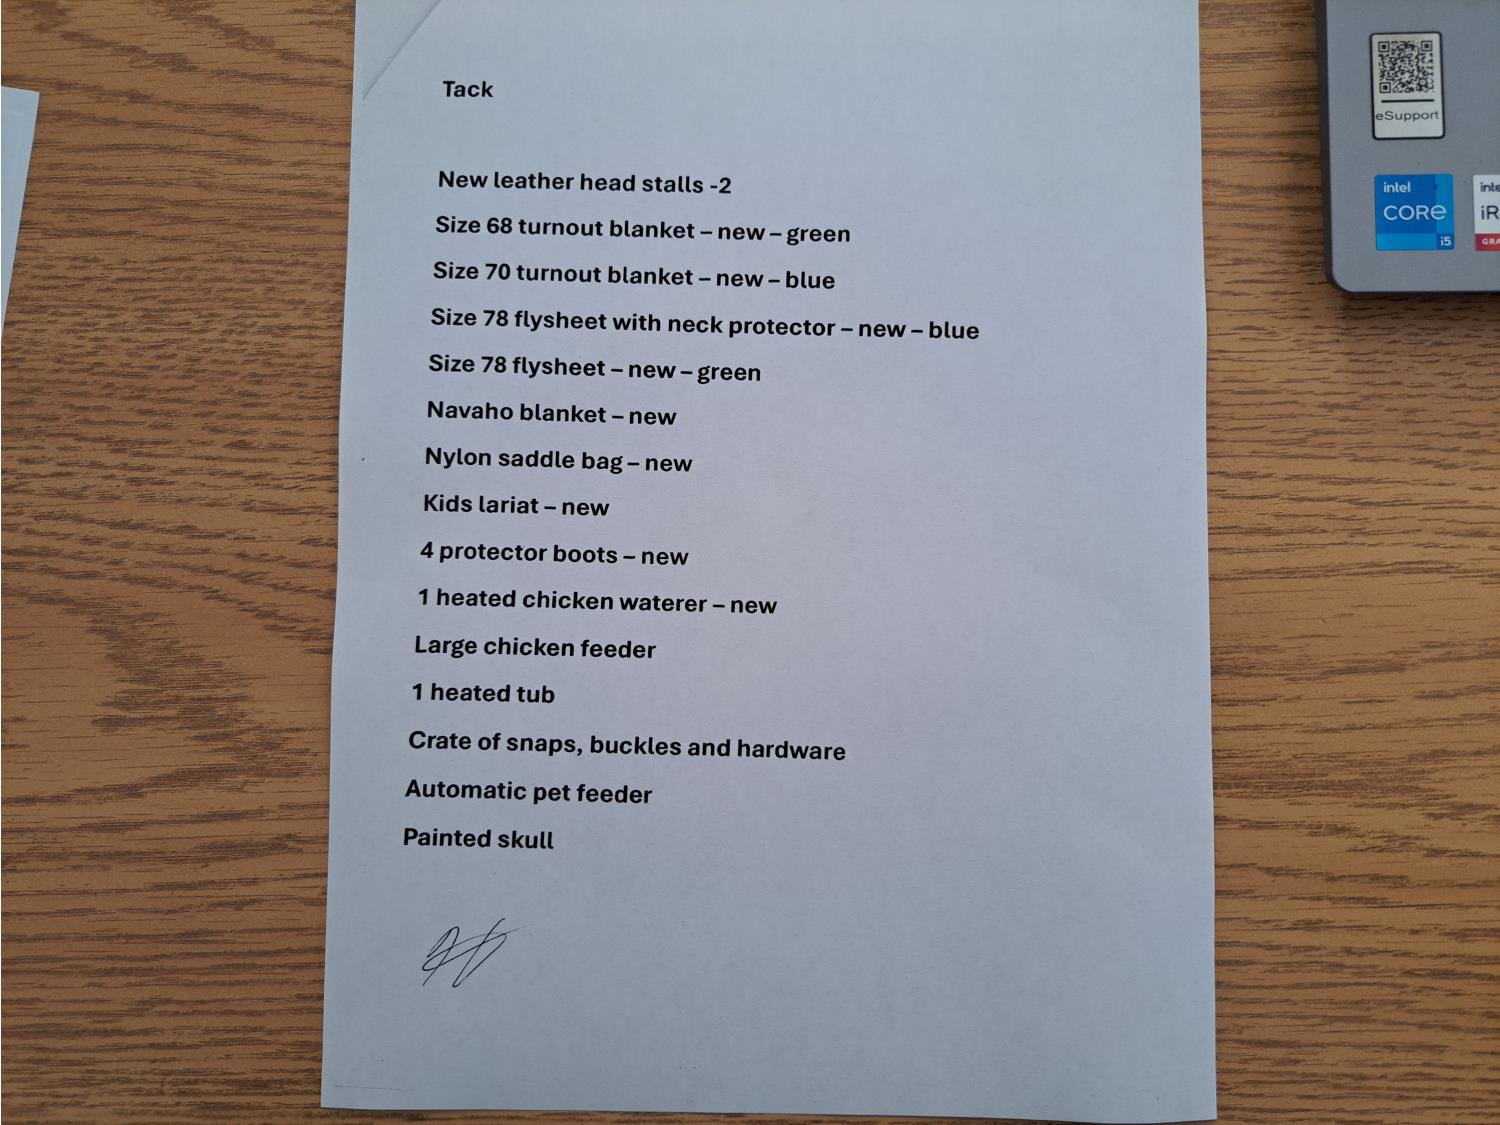 Tack
New leather head stalls -2
Size 68 turnout blanket – new – green
Size 70 turnout blanket – new – blue
Size 78 flysheet with neck protector – new – blue
Size 78 flysheet – new – green
Navaho blanket – new
Nylon saddle bag – new
Kids lariat – new
4 protector boots – new
1 heated chicken waterer – new
Large chicken feeder
1 heated tub
Crate of snaps, buckles and hardware
Automatic pet feeder
Painted skull
eSupport
intel
CORE
i5